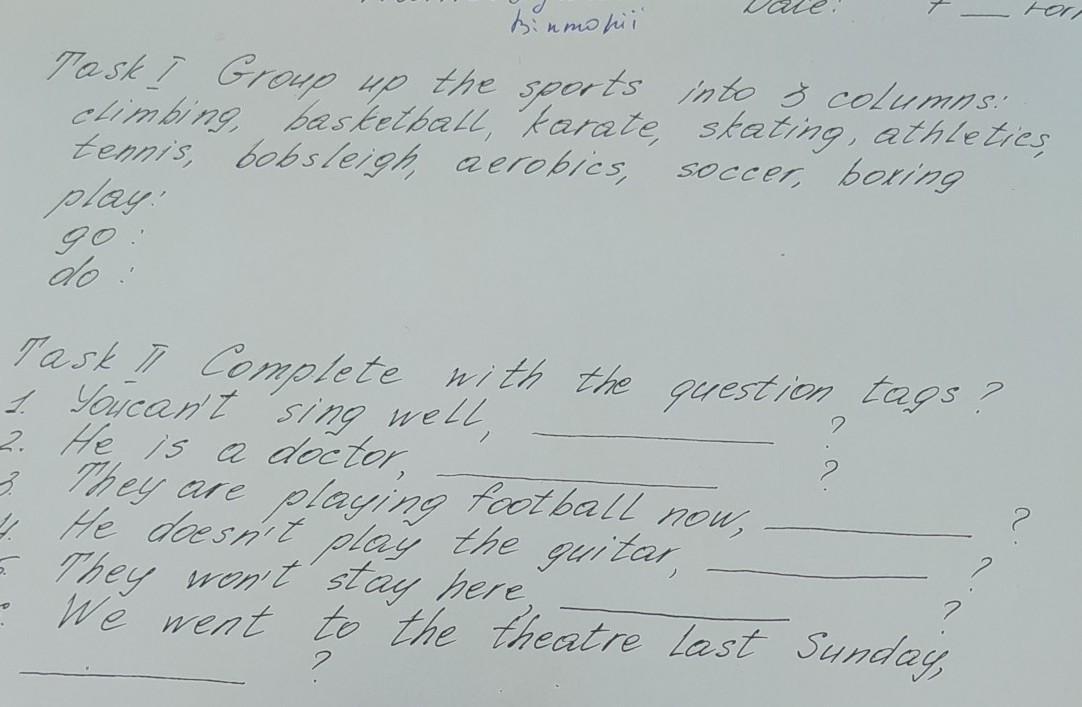 Date: 7 __
Task I Group up the sports into 3 columns:
climbing, basketball, karate, skating, athletics,
tennis, bobsleigh, aerobics, soccer, boxing
play:
go :
do :
Task II Complete with the question tags?
1. You can't sing well, __________ ?
2. He is a doctor, __________ ?
3. They are playing football now, __________ ?
4. He doesn't play the guitar, __________ ?
5. They won't stay here, __________ ?
We went to the theatre last Sunday,
__________ ?